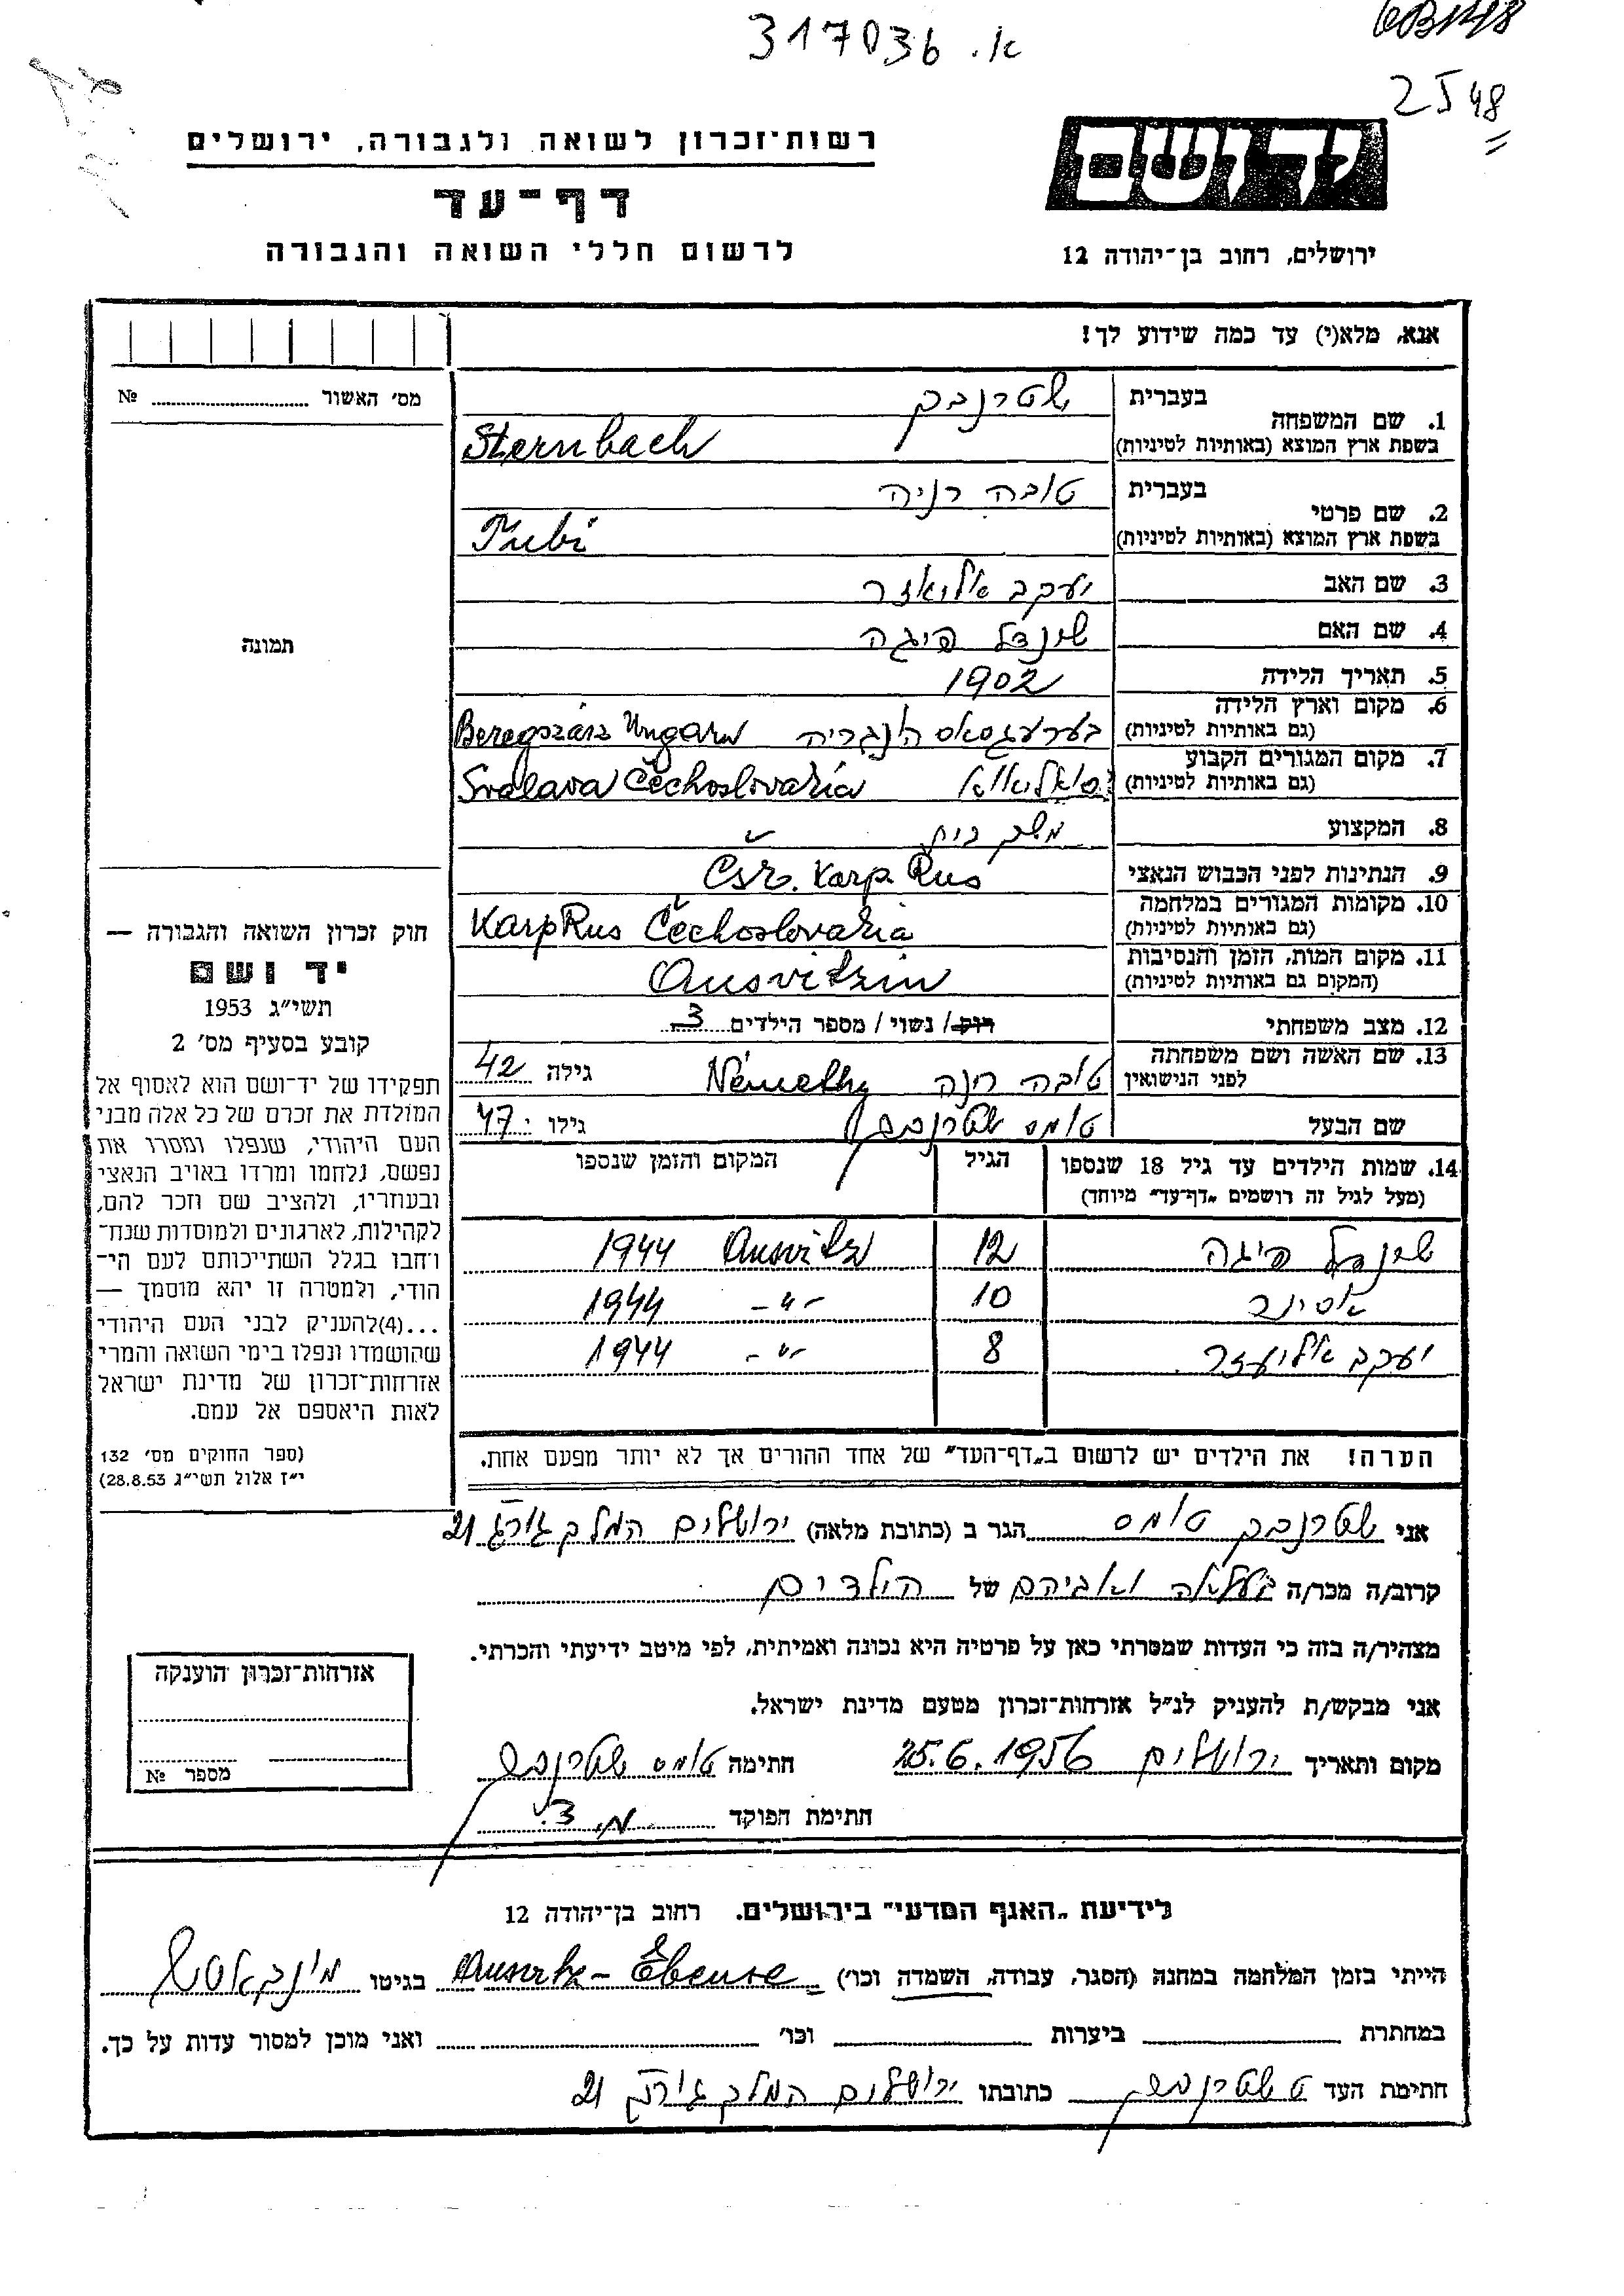 317036 .א
6B148
2548
רשות־זכרון לשואה ולגבורה, ירושלים
יד ושם
דף־עד
לרשום חללי השואה והגבורה
ירושלים, רחוב בן־יהודה 12
אנא, מלא(י) עד כמה שידוע לך!
מס׳ האשור № 
1. שם המשפחה בעברית שטרנבך
בשפת ארץ המוצא (באותיות לטיניות) Sternbach
2. שם פרטי בעברית טובה רניה
בשפת ארץ המוצא (באותיות לטיניות) Tubi
3. שם האב יעקב אליאזר
4. שם האם שינדל פיגה
5. תאריך הלידה 1902
6. מקום וארץ הלידה (גם באותיות לטיניות) בערעגסאס הונגריה Beregszász Ungarn
7. מקום המגורים הקבוע (גם באותיות לטיניות) סואליאווא Svalava Čechoslovakia
8. המקצוע משק בית
9. הנתינות לפני הכבוש הנאצי Čsr. Karp. Rus
10. מקומות המגורים במלחמה (גם באותיות לטיניות) Karp Rus Čechoslovakia
11. מקום המות, הזמן והנסיבות (המקום גם באותיות לטיניות) Ausvitzin
12. מצב משפחתי רוק/ נשוי/ מספר הילדים 3
13. שם האשה ושם משפחתה לפני הנישואין טובה רניה Némethy גילה 42
שם הבעל טומס שטרנבך גילו 47
14. שמות הילדים עד גיל 18 שנספו
(מעל לגיל זה רושמים „דף־עד״ מיוחד)
הגיל
המקום והזמן שנספו
שינדל פיגה 12 Ausvitz 1944
10 -״- 1944
יעקב אליעזר 8 -״- 1944
הערה! את הילדים יש לרשום ב„דף־העד״ של אחד ההורים אך לא יותר מפעם אחת.
תמונה
חוק זכרון השואה והגבורה —
יד ושם
תשי״ג 1953
קובע בסעיף מס׳ 2
תפקידו של יד־ושם הוא לאסוף אל
המולדת את זכרם של כל אלה מבני
העם היהודי, שנפלו ומסרו את
נפשם, נלחמו ומרדו באויב הנאצי
ובעוזריו, ולהציב שם וזכר להם,
לקהילות, לארגונים ולמוסדות שנח־
רבו בגלל השתייכותם לעם הי־
הודי, ולמטרה זו יהא מוסמך —
...(4)להעניק לבני העם היהודי
שהושמדו ונפלו בימי השואה והמרי
אזרחות־זכרון של מדינת ישראל
לאות היאספם אל עמם.
(ספר החוקים מס׳ 132
י״ז אלול תשי״ג 28.8.53)
אני שטרנבך טומס הגר ב (כתובת מלאה) ירושלים המלך גורג 21
קרוב/ה מכר/ה בעלה ואביהם של הילדים
מצהיר/ה בזה כי העדות שמסרתי כאן על פרטיה היא נכונה ואמיתית, לפי מיטב ידיעתי והכרתי.
אני מבקש/ת להעניק לנ״ל אזרחות־זכרון מטעם מדינת ישראל.
מקום ותאריך ירושלים 25.6.1956 חתימה טומס שטרנבך
חתימת הפוקד
אזרחות־זכרון הוענקה
מספר №
לידיעת „האגף המדעי״ בירושלים. רחוב בן־יהודה 12
הייתי בזמן המלחמה במחנה (הסגר, עבודה, השמדה וכו׳) Ausvitz - Ebense בגיטו מונקאטש
במחתרת ביערות וכו׳ ואני מוכן למסור עדות על כך.
חתימת העד ט שטרנבך כתובתו ירושלים המלך גורג 21